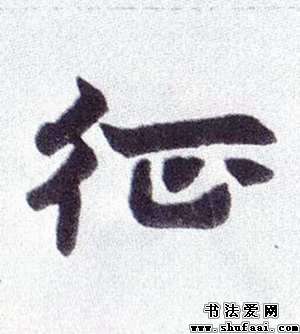 征
书法爱网
www.shufaai.com